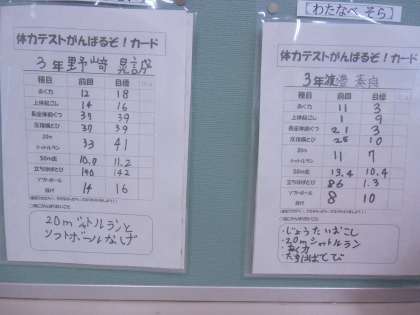 体力テストがんばるぞ！カード
3年 野崎
種目 前回 目標
あく力 12 18
上体起こし 14 16
長座体前くつ 37 39
反復横とび 37 39
20m
シャトルラン 33 41
50m走 10.9 11.2
立ちはばとび 140 142
ソフトボール
投げ 14 16
20mシャトルランと
ソフトボールなげ
[わたなべ そら]
体力テストがんばるぞ！カード
3年 渡邉
種目 前回 目標
あく力 11 3
上体起こし 1 9
長座体前くつ 21 3
反復横とび 25 10
20m
シャトルラン 11 7
50m走 13.4 10.4
立ちはばとび 86 1.3
ソフトボール
投げ 8 10
・じょうたいおこし
・20mシャトルラン
・あく力
・たちはばとび